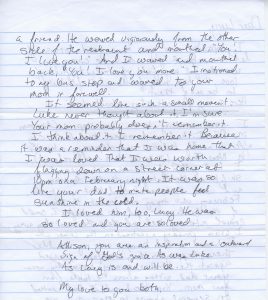 a friend. He waved vigorously from the other
side of the restaurant and mouthed "You!
I love you!" And I waved and mouthed
back, "You! I love you more." I motioned
to my bus stop and waved to your
mom in farewell.
It seemed like such a small moment.
Luke never thought about it I'm sure.
Your mom probably doesn't remember it.
I think about it. I remember it. Because
it was a reminder that I was home. That
I was loved. That I was worth
flagging down on a street corner at
pm on a February night. It was so
like your dad to make people feel
sunshine in the cold.
I loved him, too, Lucy. He was
so loved and you are so loved.
Allison, you are an inspiration and outward
sign of God's grace to us as Luke
to Lucy is and will be.
My love to you both,